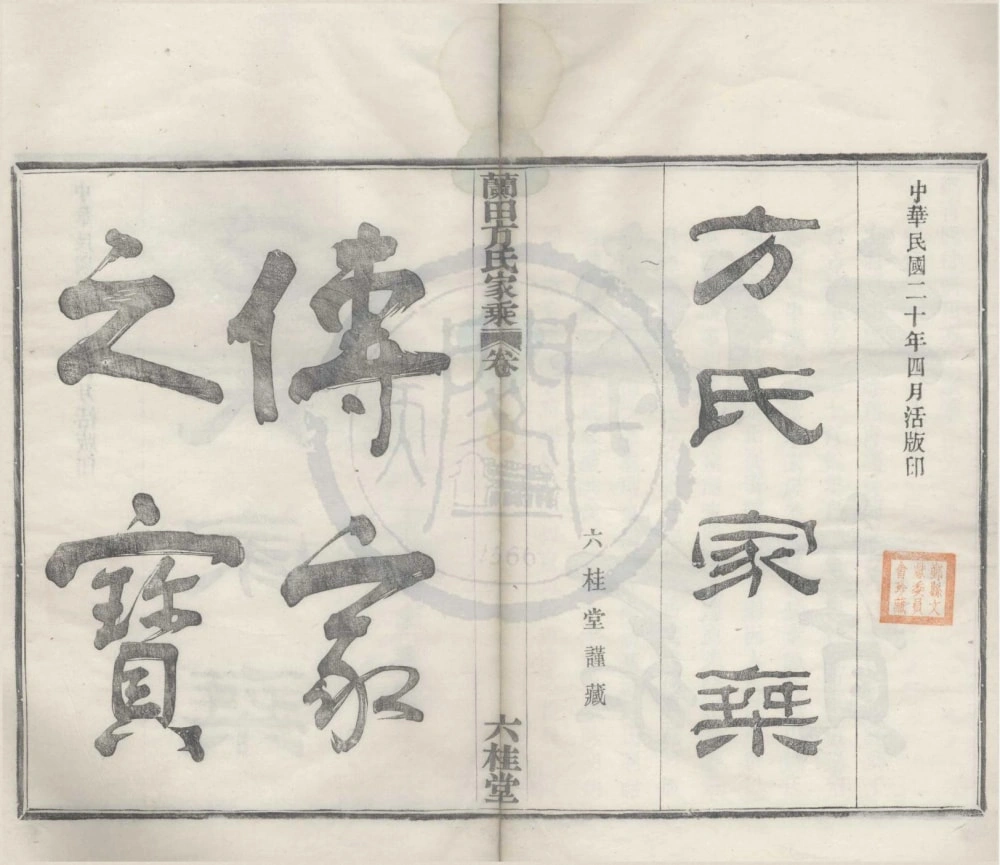 中華民國二十年四月活版印
方氏家乘
六桂堂謹藏
蘭田方氏家乘 卷
六桂堂
傳家
之寶
1966